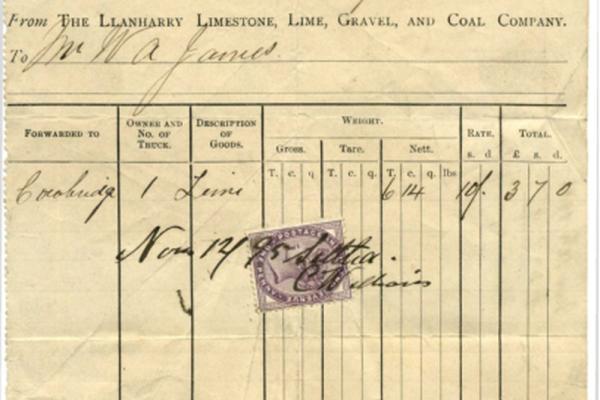 From THE LLANHARRY LIMESTONE, LIME, GRAVEL, AND COAL COMPANY.
To Mr W A James.
WEIGHT.
FORWARDED TO OWNER AND NO. OF TRUCK. DESCRIPTION OF GOODS. Gross. Tare. Nett. RATE. TOTAL.
s. d. £ s. d.
T. c. q T. c. q. T. c. q. lbs
Cowbridge 1 Lime 6 14 10/. 3 7 0
POSTAGE
Nov 12/95 Settled.
C Williams